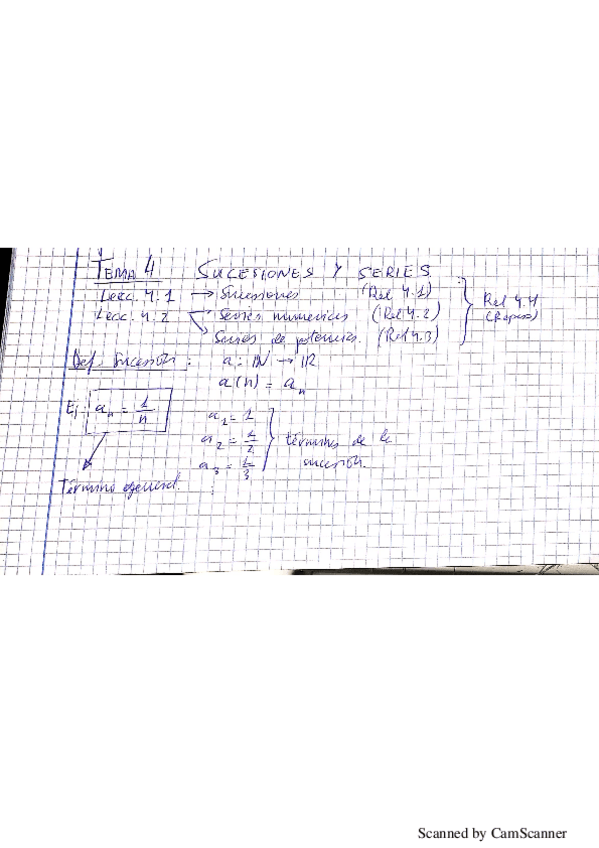 TEMA 4 SUCESIONES Y SERIES
Lecc. 4.1 → Sucesiones (Rel 4.1)
Lecc. 4.2 → Series numéricas (Rel 4.2)
Series de potencias. (Rel 4.3)
Rel 4.4
(Repaso)
Def. Sucesión: a: ℕ → ℝ
a(n) = aₙ
Ej: aₙ = 1/n
a₁ = 1
a₂ = 1/2
a₃ = 1/3
⋮
términos de la
sucesión.
Término general.
Scanned by CamScanner